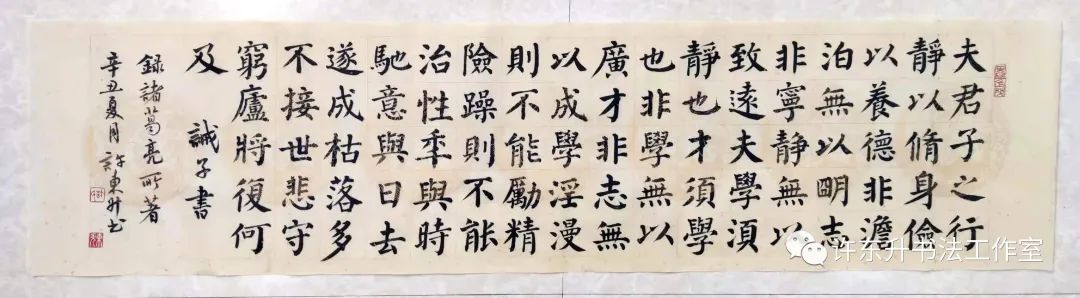 夫君子之行
靜以脩身儉
以養德非澹
泊無以眀志
非寧靜無以
致遠夫學須
靜也才須學
也非學無以
廣才非志無
以成學淫漫
則不能勵精
險躁則不能
治性秊與時
馳意與日去
遂成枯落多
不接世悲守
窮廬將復何
及 誡子書
錄諸葛亮所著
辛丑夏月許東升书
许东升书法工作室